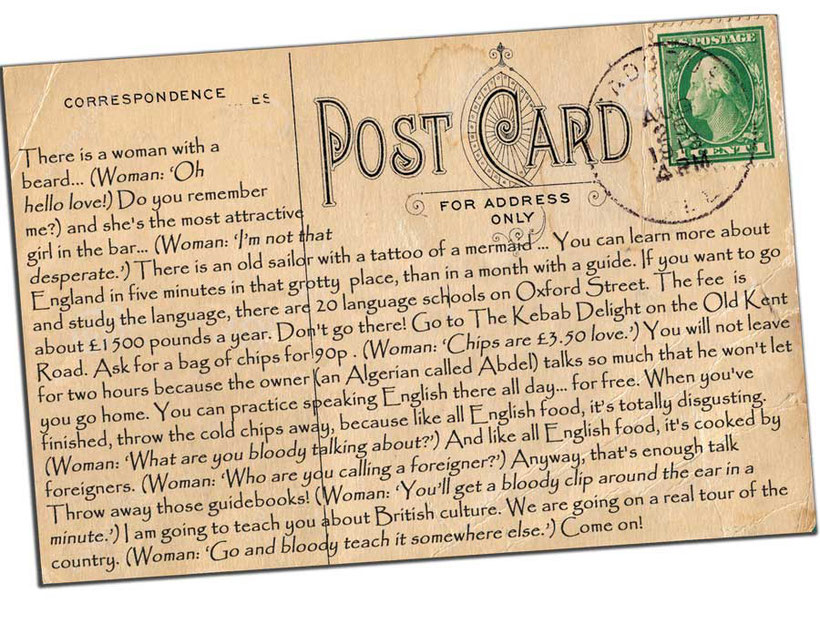 CORRESPONDENCE ES
POST CARD
FOR ADDRESS
ONLY
U.S. POSTAGE
AUG
4 PM
CENT
There is a woman with a
beard... (Woman: ‘Oh
hello love!) Do you remember
me?) and she's the most attractive
girl in the bar... (Woman: ‘I'm not that
desperate.’) There is an old sailor with a tattoo of a mermaid ... You can learn more about
England in five minutes in that grotty place, than in a month with a guide. If you want to go
and study the language, there are 20 language schools on Oxford Street. The fee is
about £1500 pounds a year. Don't go there! Go to The Kebab Delight on the Old Kent
Road. Ask for a bag of chips for 90p . (Woman: ‘Chips are £3.50 love.’) You will not leave
for two hours because the owner (an Algerian called Abdel) talks so much that he won't let
you go home. You can practice speaking English there all day... for free. When you've
finished, throw the cold chips away, because like all English food, it's totally disgusting.
(Woman: ‘What are you bloody talking about?’) And like all English food, it's cooked by
foreigners. (Woman: ‘Who are you calling a foreigner?’) Anyway, that's enough talk
Throw away those guidebooks! (Woman: ‘You'll get a bloody clip around the ear in a
minute.’) I am going to teach you about British culture. We are going on a real tour of the
country. (Woman: ‘Go and bloody teach it somewhere else.’) Come on!